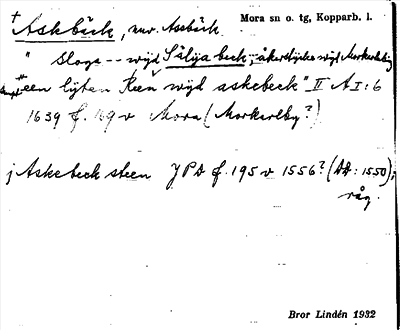 † Askbäck, nuv. Assbäck. Mora sn o. tg, Kopparb. l.
" Sloga -- wijd Silija beck; åkerstycke wijd Morkarleby
een lijten Reen wijd askebeck" II A I: 6
1639 f. 169 v Mora (Morkarlby?)
j Askebeck steen JPA f. 195 v 1556? (AA: 1550);
råg.
Bror Lindén 1932